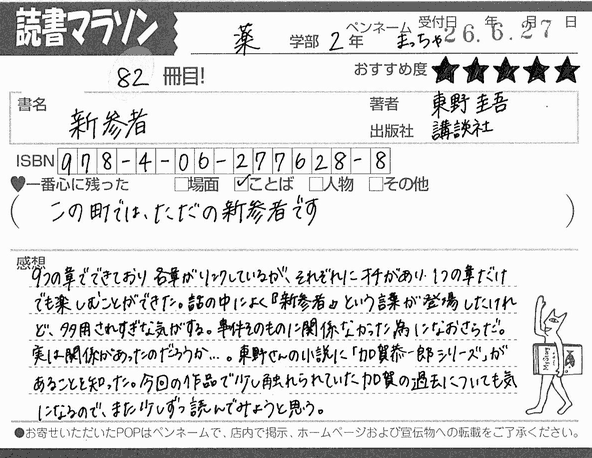 読書マラソン
薬 学部 2年 ペンネーム まっちゃ 受付日 年 月 日 26.6.27
82 冊目! おすすめ度 ★★★★★
書名 新参者
著者 東野圭吾
出版社 講談社
ISBN 978-4-06-277628-8
♥一番心に残った □場面 ☑ことば □人物 □その他
(この町では、ただの新参者です)
感想
9つの章でできており各章がリンクしているが、それぞれにオチがあり1つの章だけ
でも楽しむことができた。話の中によく『新参者』という言葉が登場したけれ
ど、多用されすぎな気がする。事件そのものに関係なかった為になおさらだ。
実は関係があったのだろうか…。東野さんの小説に「加賀恭一郎シリーズ」が
あることを知った。今回の作品で少し触れられていた加賀の過去についても気
になるので、また少しずつ読んでみようと思う。
●お寄せいただいたPOPはペンネームで、店内で掲示、ホームページおよび宣伝物への転載をご了承ください。